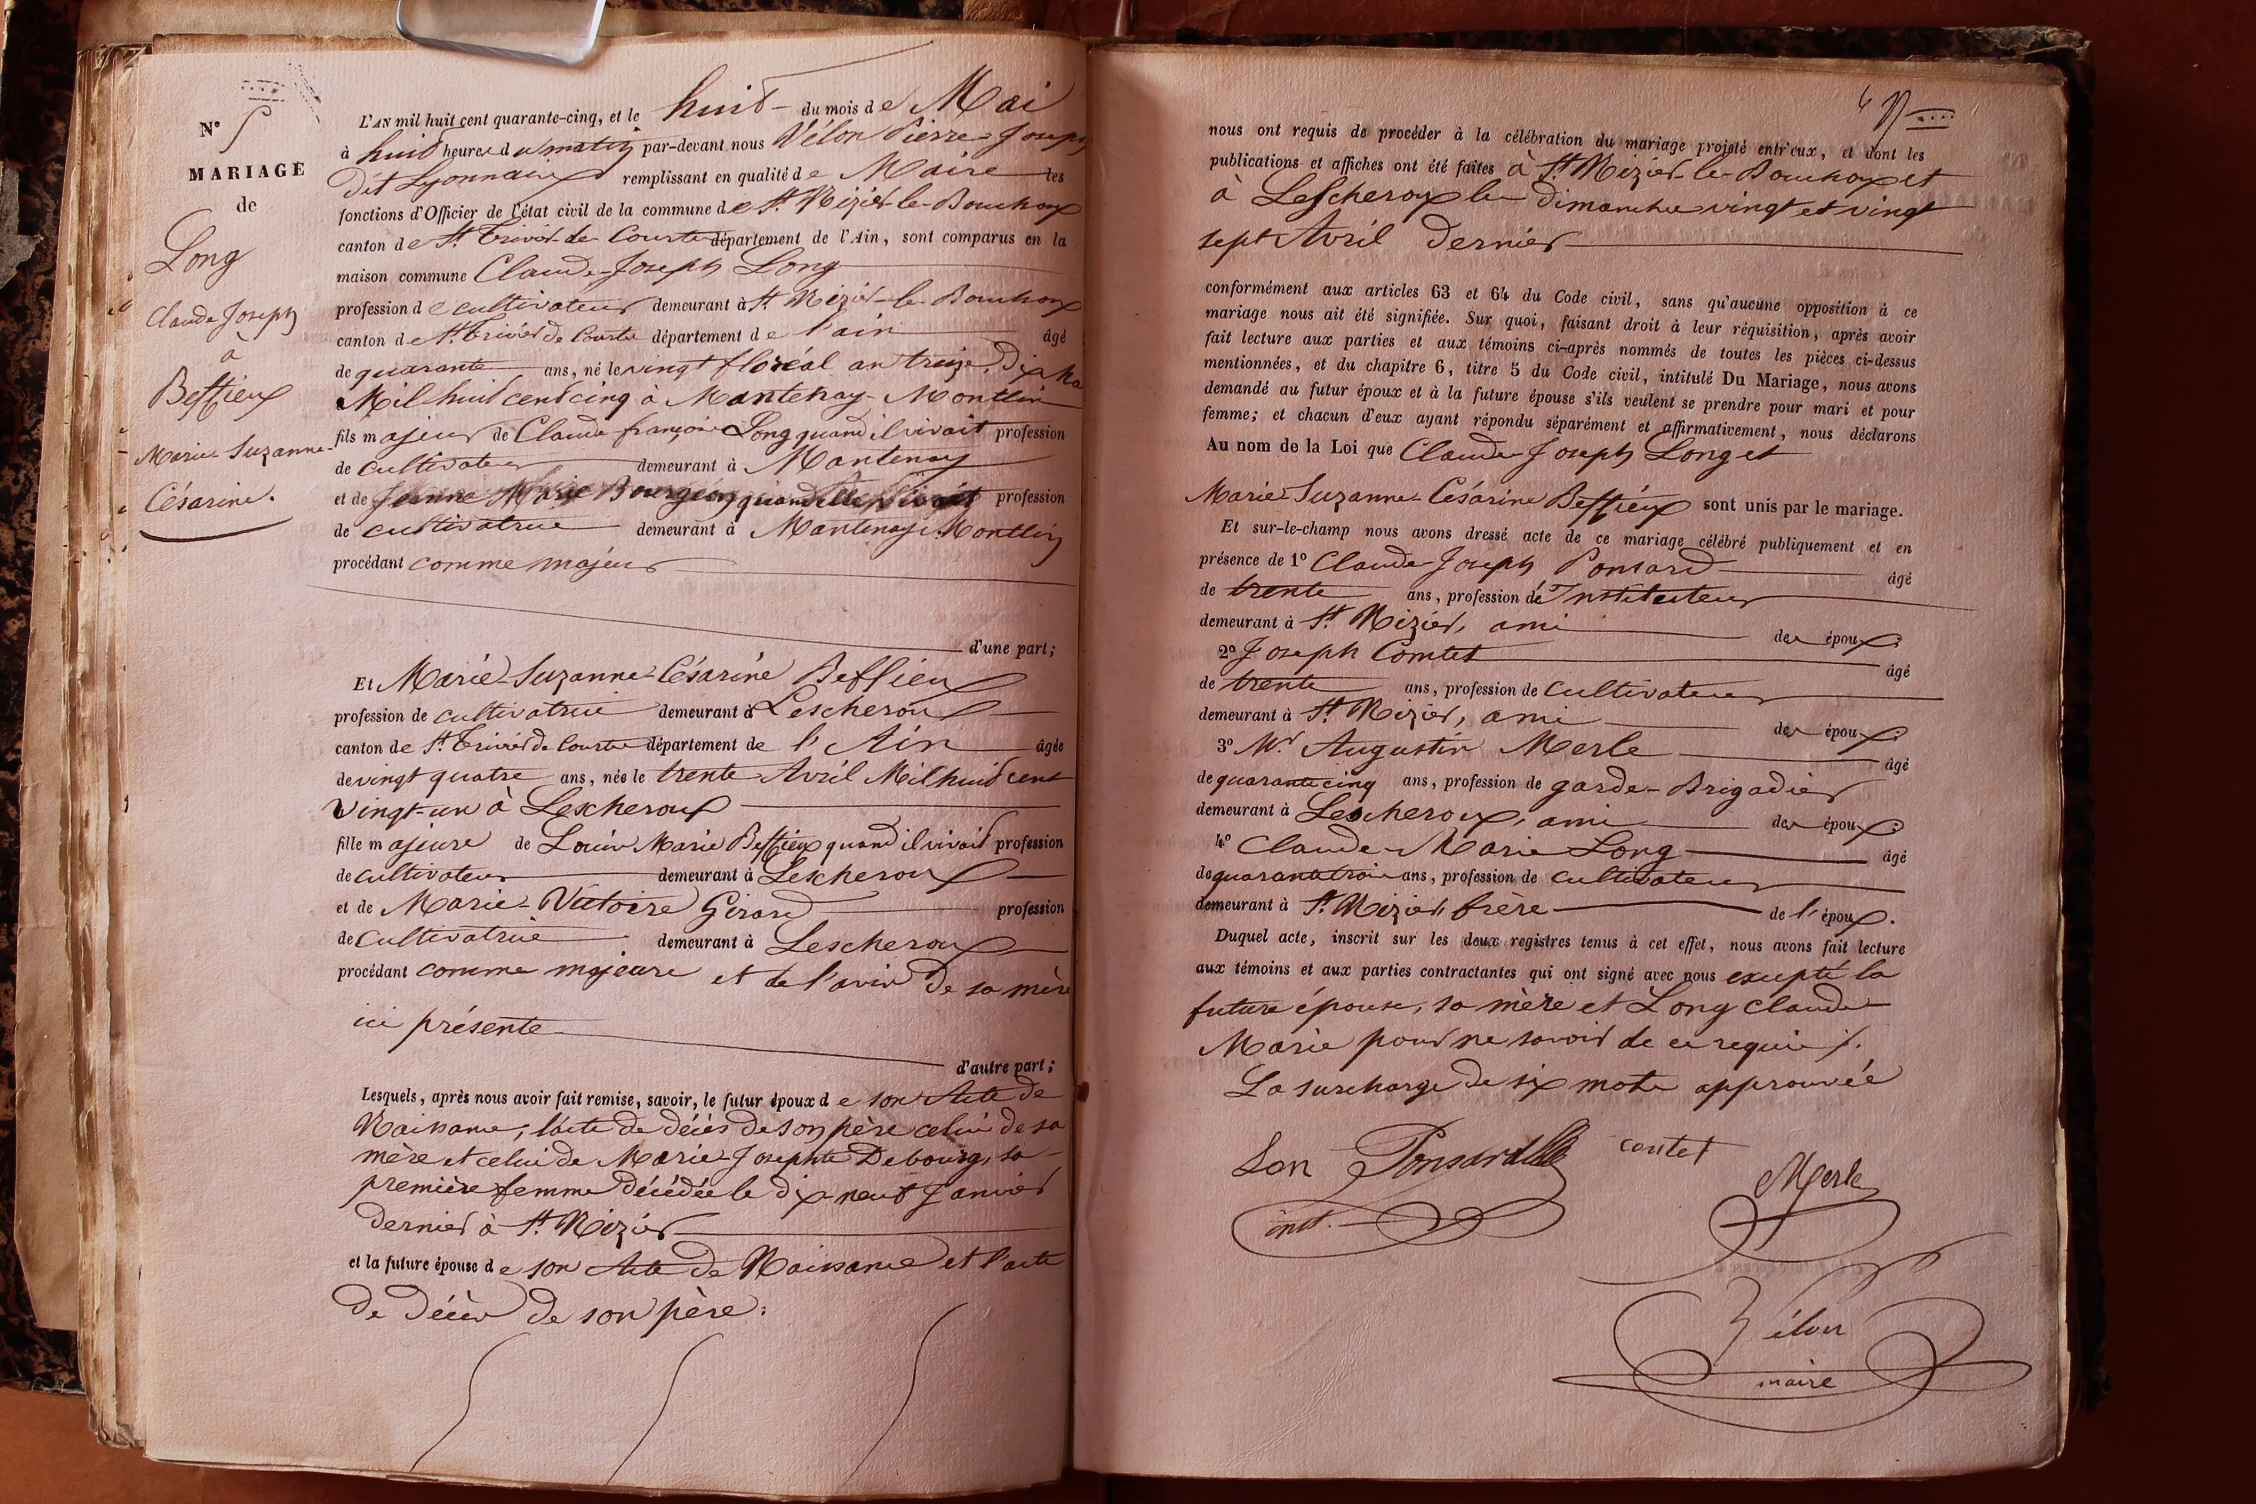 N° 5
MARIAGE
de
Long
Claude Joseph
à
Beffieux
Marie Suzanne
Césarine.
L'AN mil huit cent quarante-cinq, et le huit du mois de Mai
à huit heures du matin par-devant nous Vélon Pierre-Joseph
dit Lyonnais remplissant en qualité de Maire les
fonctions d'Officier de l'état civil de la commune de St. Nizier-le-Bouchoux
canton de St. Trivier de Courtes département de l'Ain, sont comparus en la
maison commune Claude-Joseph Long
profession de cultivateur demeurant à St. Nizier-le-Bouchoux
canton de St. Trivier de Courtes département de l'ain âgé
de quarante ans, né le vingt floréal an treize, dix Mai
Mil huit cent cinq à Mantenay-Montlin
fils majeur de Claude françois Long quand il vivait profession
de cultivateur demeurant à Mantenay
et de Jeanne Marie Bourgeon quand elle vivait profession
de cultivatrice demeurant à Mantenay-Montlin
procédant comme majeur
d'une part;
Et Marie-Suzanne-Césarine Beffieux
profession de cultivatrice demeurant à Lescheroux
canton de St. Trivier de Courtes département de l'Ain âgée
de vingt quatre ans, née le trente Avril Mil huit cent
vingt-un à Lescheroux
fille majeure de Louis Marie Beffieux quand il vivait profession
de cultivateur demeurant à Lescheroux
et de Marie-Victoire Girard profession
de cultivatrice demeurant à Lescheroux
procédant comme majeure et de l'avis de sa mère
ici présente
d'autre part;
Lesquels, après nous avoir fait remise, savoir, le futur époux de son Acte de
Naissance, l'acte de décès de son père celui de sa
mère et celui de Marie-Josephte Debourg, sa
première femme décédée le dix neuf Janvier
dernier à St. Nizier
et la future épouse de son Acte de Naissance et l'acte
de décès de son père.
nous ont requis de procéder à la célébration du mariage projeté entr'eux, et dont les
publications et affiches ont été faites à St. Nizier-le-Bouchoux et
à Lescheroux les dimanches vingt et vingt
sept Avril dernier
conformément aux articles 63 et 64 du Code civil, sans qu'aucune opposition à ce
mariage nous ait été signifiée. Sur quoi, faisant droit à leur réquisition, après avoir
fait lecture aux parties et aux témoins ci-après nommés de toutes les pièces ci-dessus
mentionnées, et du chapitre 6, titre 5 du Code civil, intitulé Du Mariage, nous avons
demandé au futur époux et à la future épouse s'ils veulent se prendre pour mari et pour
femme; et chacun d'eux ayant répondu séparément et affirmativement, nous déclarons
Au nom de la Loi que Claude Joseph Long et
Marie-Suzanne-Césarine Beffieux sont unis par le mariage.
Et sur-le-champ nous avons dressé acte de ce mariage célébré publiquement et en
présence de 1° Claude-Joseph Ponsard âgé
de trente ans, profession de Instituteur
demeurant à St. Nizier, ami des époux.
2° Joseph Comtet âgé
de trente ans, profession de cultivateur
demeurant à St. Nizier, ami des époux.
3° Mr. Augustin Merle âgé
de quarante cinq ans, profession de garde-Brigadier
demeurant à Lescheroux, ami des époux.
4° Claude-Marie Long âgé
de quarante trois ans, profession de cultivateur
demeurant à St. Nizier, frère de l'époux.
Duquel acte, inscrit sur les deux registres tenus à cet effet, nous avons fait lecture
aux témoins et aux parties contractantes qui ont signé avec nous excepté la
future épouse, sa mère et Long Claude
Marie pour ne savoir de ce requis /.
La surcharge de six mots approuvée
Lon Ponsard contet
inst. Merle
Vélon
maire